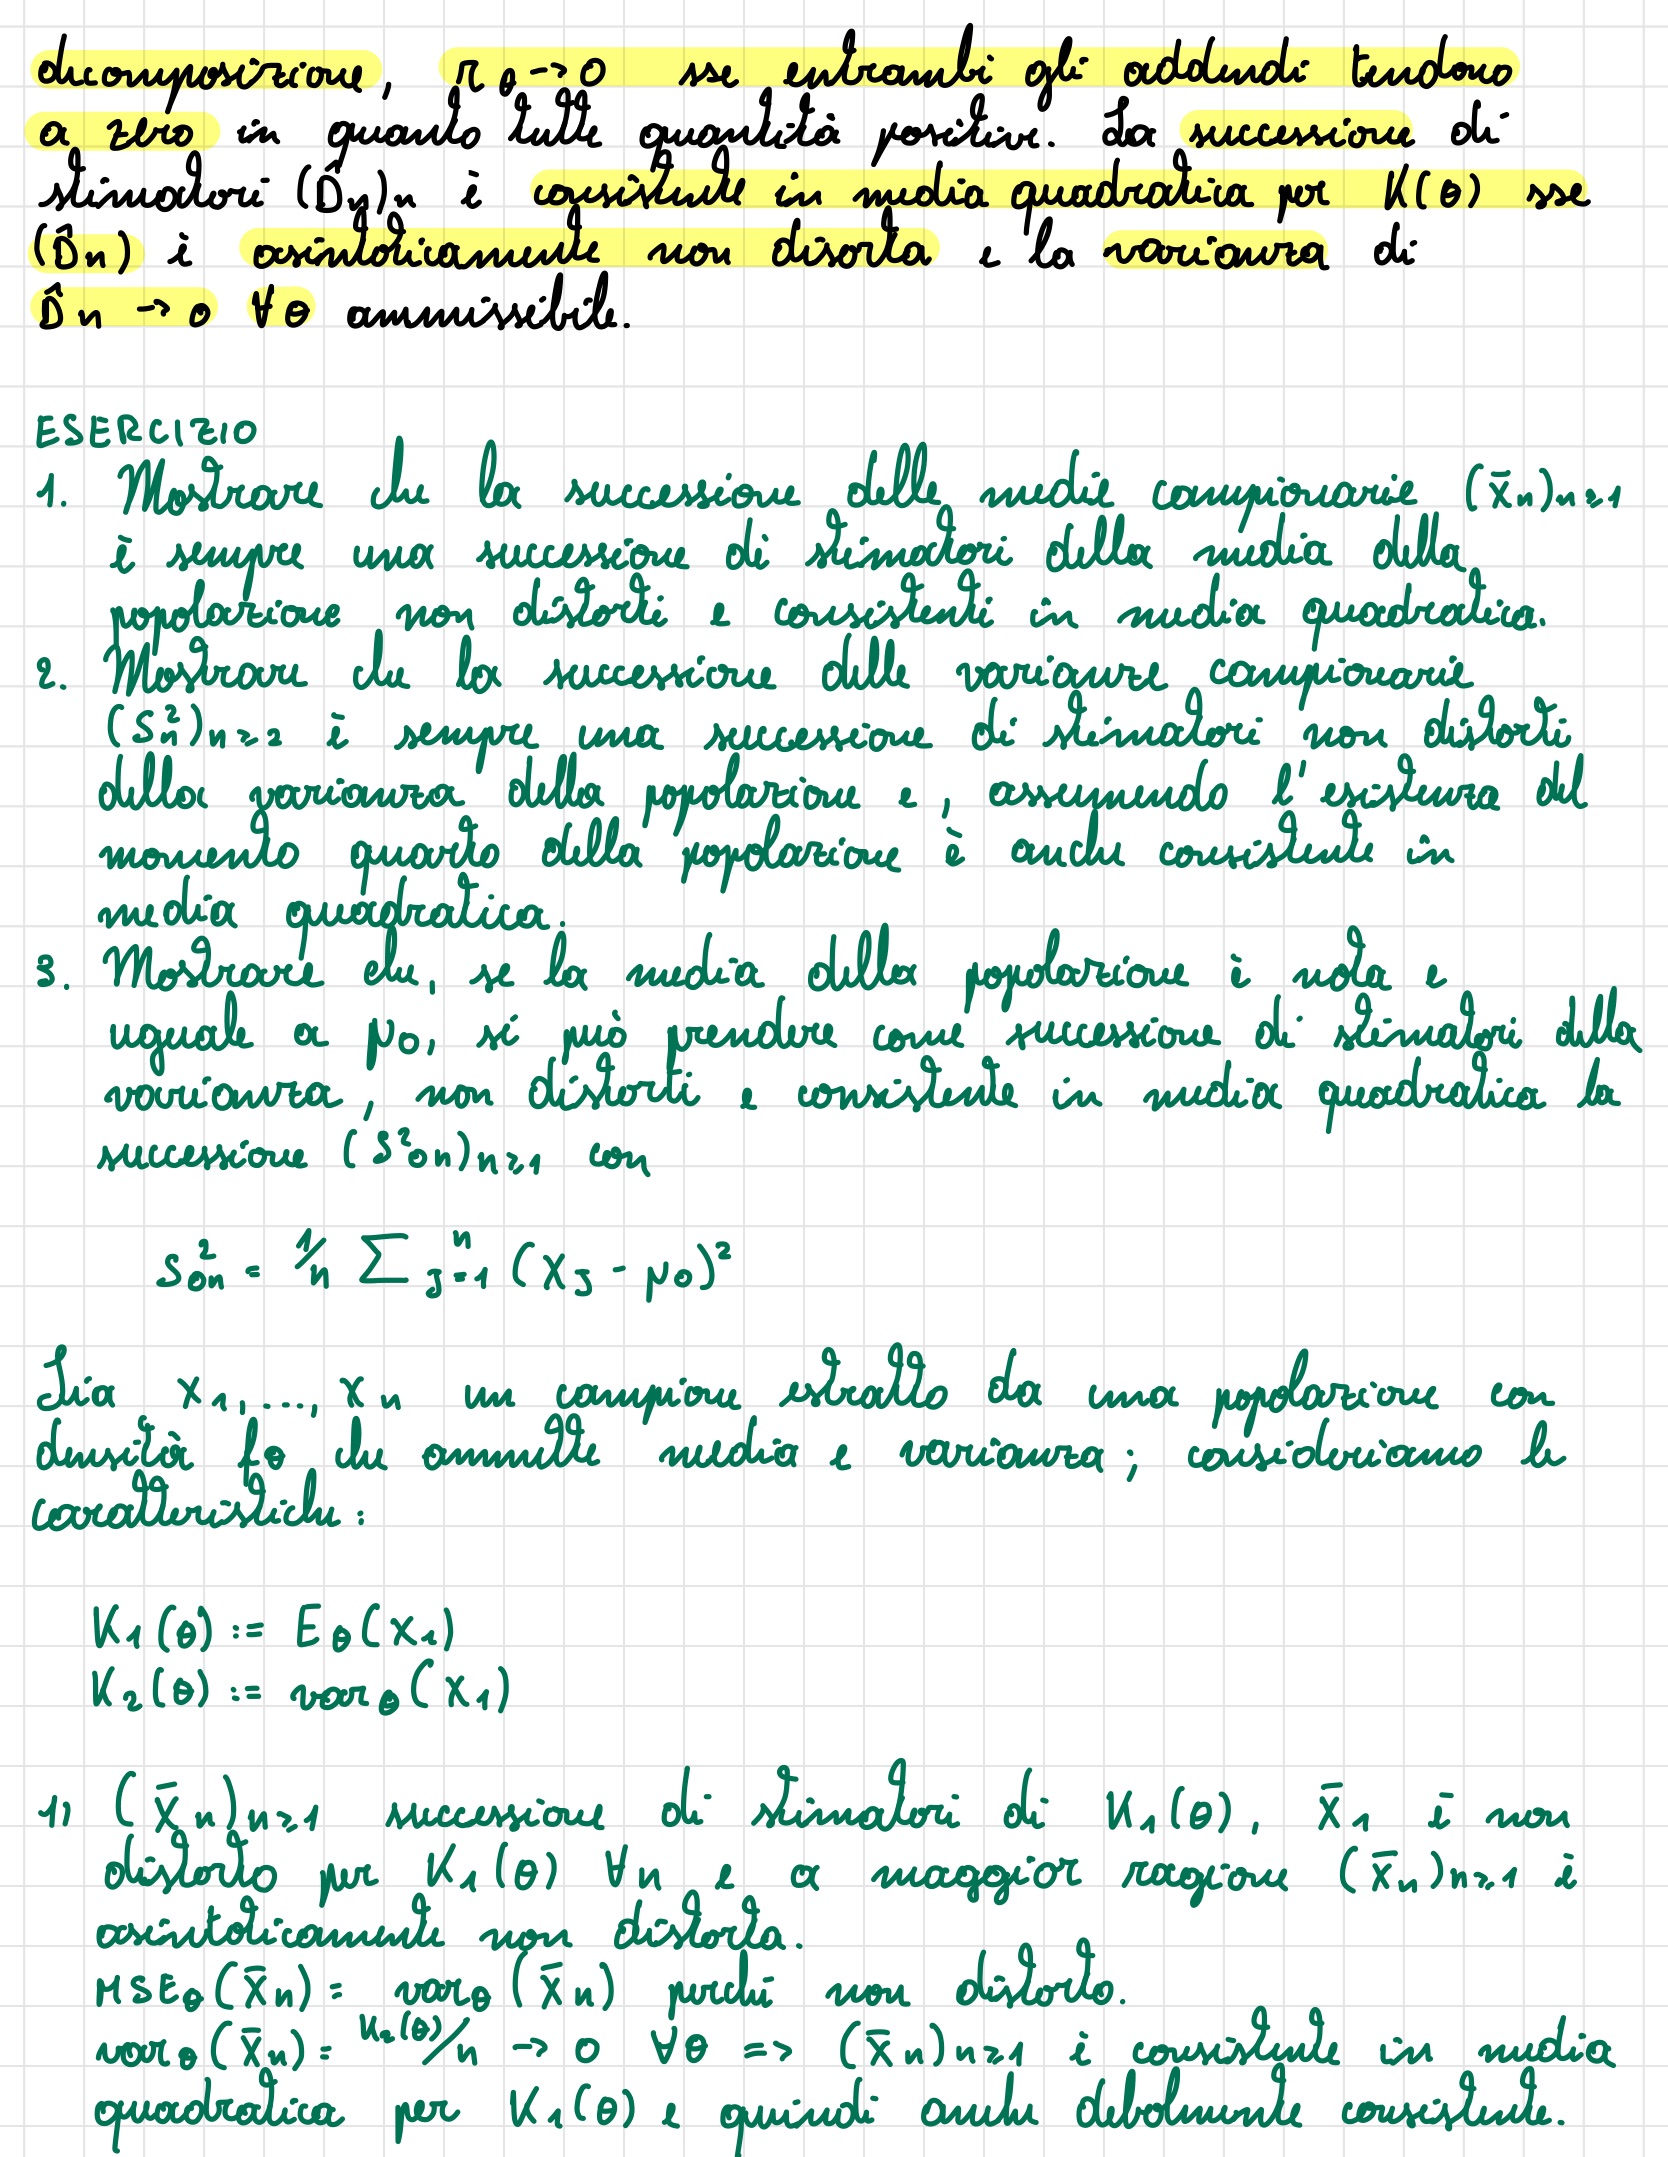 decomposizione, r_θ → 0 sse entrambi gli addendi tendono
a zero in quanto tutte quantità positive. La successione di
stimatori (D̂n)n è consistente in media quadratica per K(θ) sse
(D̂n) è asintoticamente non disorta e la varianza di
D̂n → 0 ∀θ ammissibile.
ESERCIZIO
1. Mostrare che la successione delle medie campionarie (X̄n)n≥1
è sempre una successione di stimatori della media della
popolazione non distorti e consistenti in media quadratica.
2. Mostrare che la successione delle varianze campionarie
(S²n)n≥2 è sempre una successione di stimatori non distorti
della varianza della popolazione e, assumendo l'esistenza del
momento quarto della popolazione è anche consistente in
media quadratica.
3. Mostrare che, se la media della popolazione è nota e
uguale a μ0, si può prendere come successione di stimatori della
varianza, non distorti e consistente in media quadratica la
successione (S²0n)n≥1 con
S²0n = 1/n ∑ j=1^n (Xj - μ0)²
Sia X1,...,Xn un campione estratto da una popolazione con
densità fθ che ammette media e varianza; consideriamo le
caratteristiche:
K1(θ) := Eθ(X1)
K2(θ) := varθ(X1)
1) (X̄n)n≥1 successione di stimatori di K1(θ), X̄1 è non
distorto per K1(θ) ∀n e a maggior ragione (X̄n)n≥1 è
asintoticamente non distorta.
MSEθ(X̄n) = varθ(X̄n) perché non distorto.
varθ(X̄n) = K2(θ)/n → 0 ∀θ => (X̄n)n≥1 è consistente in media
quadratica per K1(θ) e quindi anche debolmente consistente.